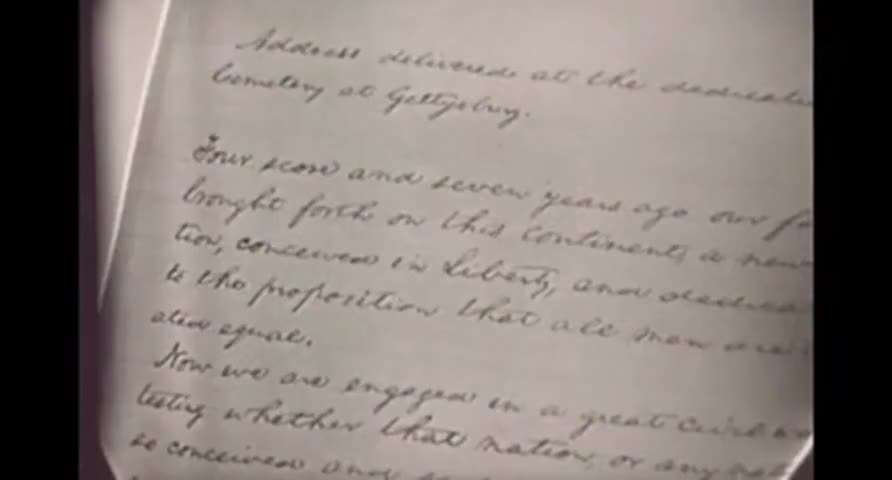 Address delivered at the dedicati
Cemetery at Gettysburg.
Four score and seven years ago our fa
brought forth on this continent, a new
tion, conceived in Liberty, and dedica
to the proposition that all men are
ated equal.
Now we are engaged in a great civil wa
testing whether that nation, or any nat
so conceived and